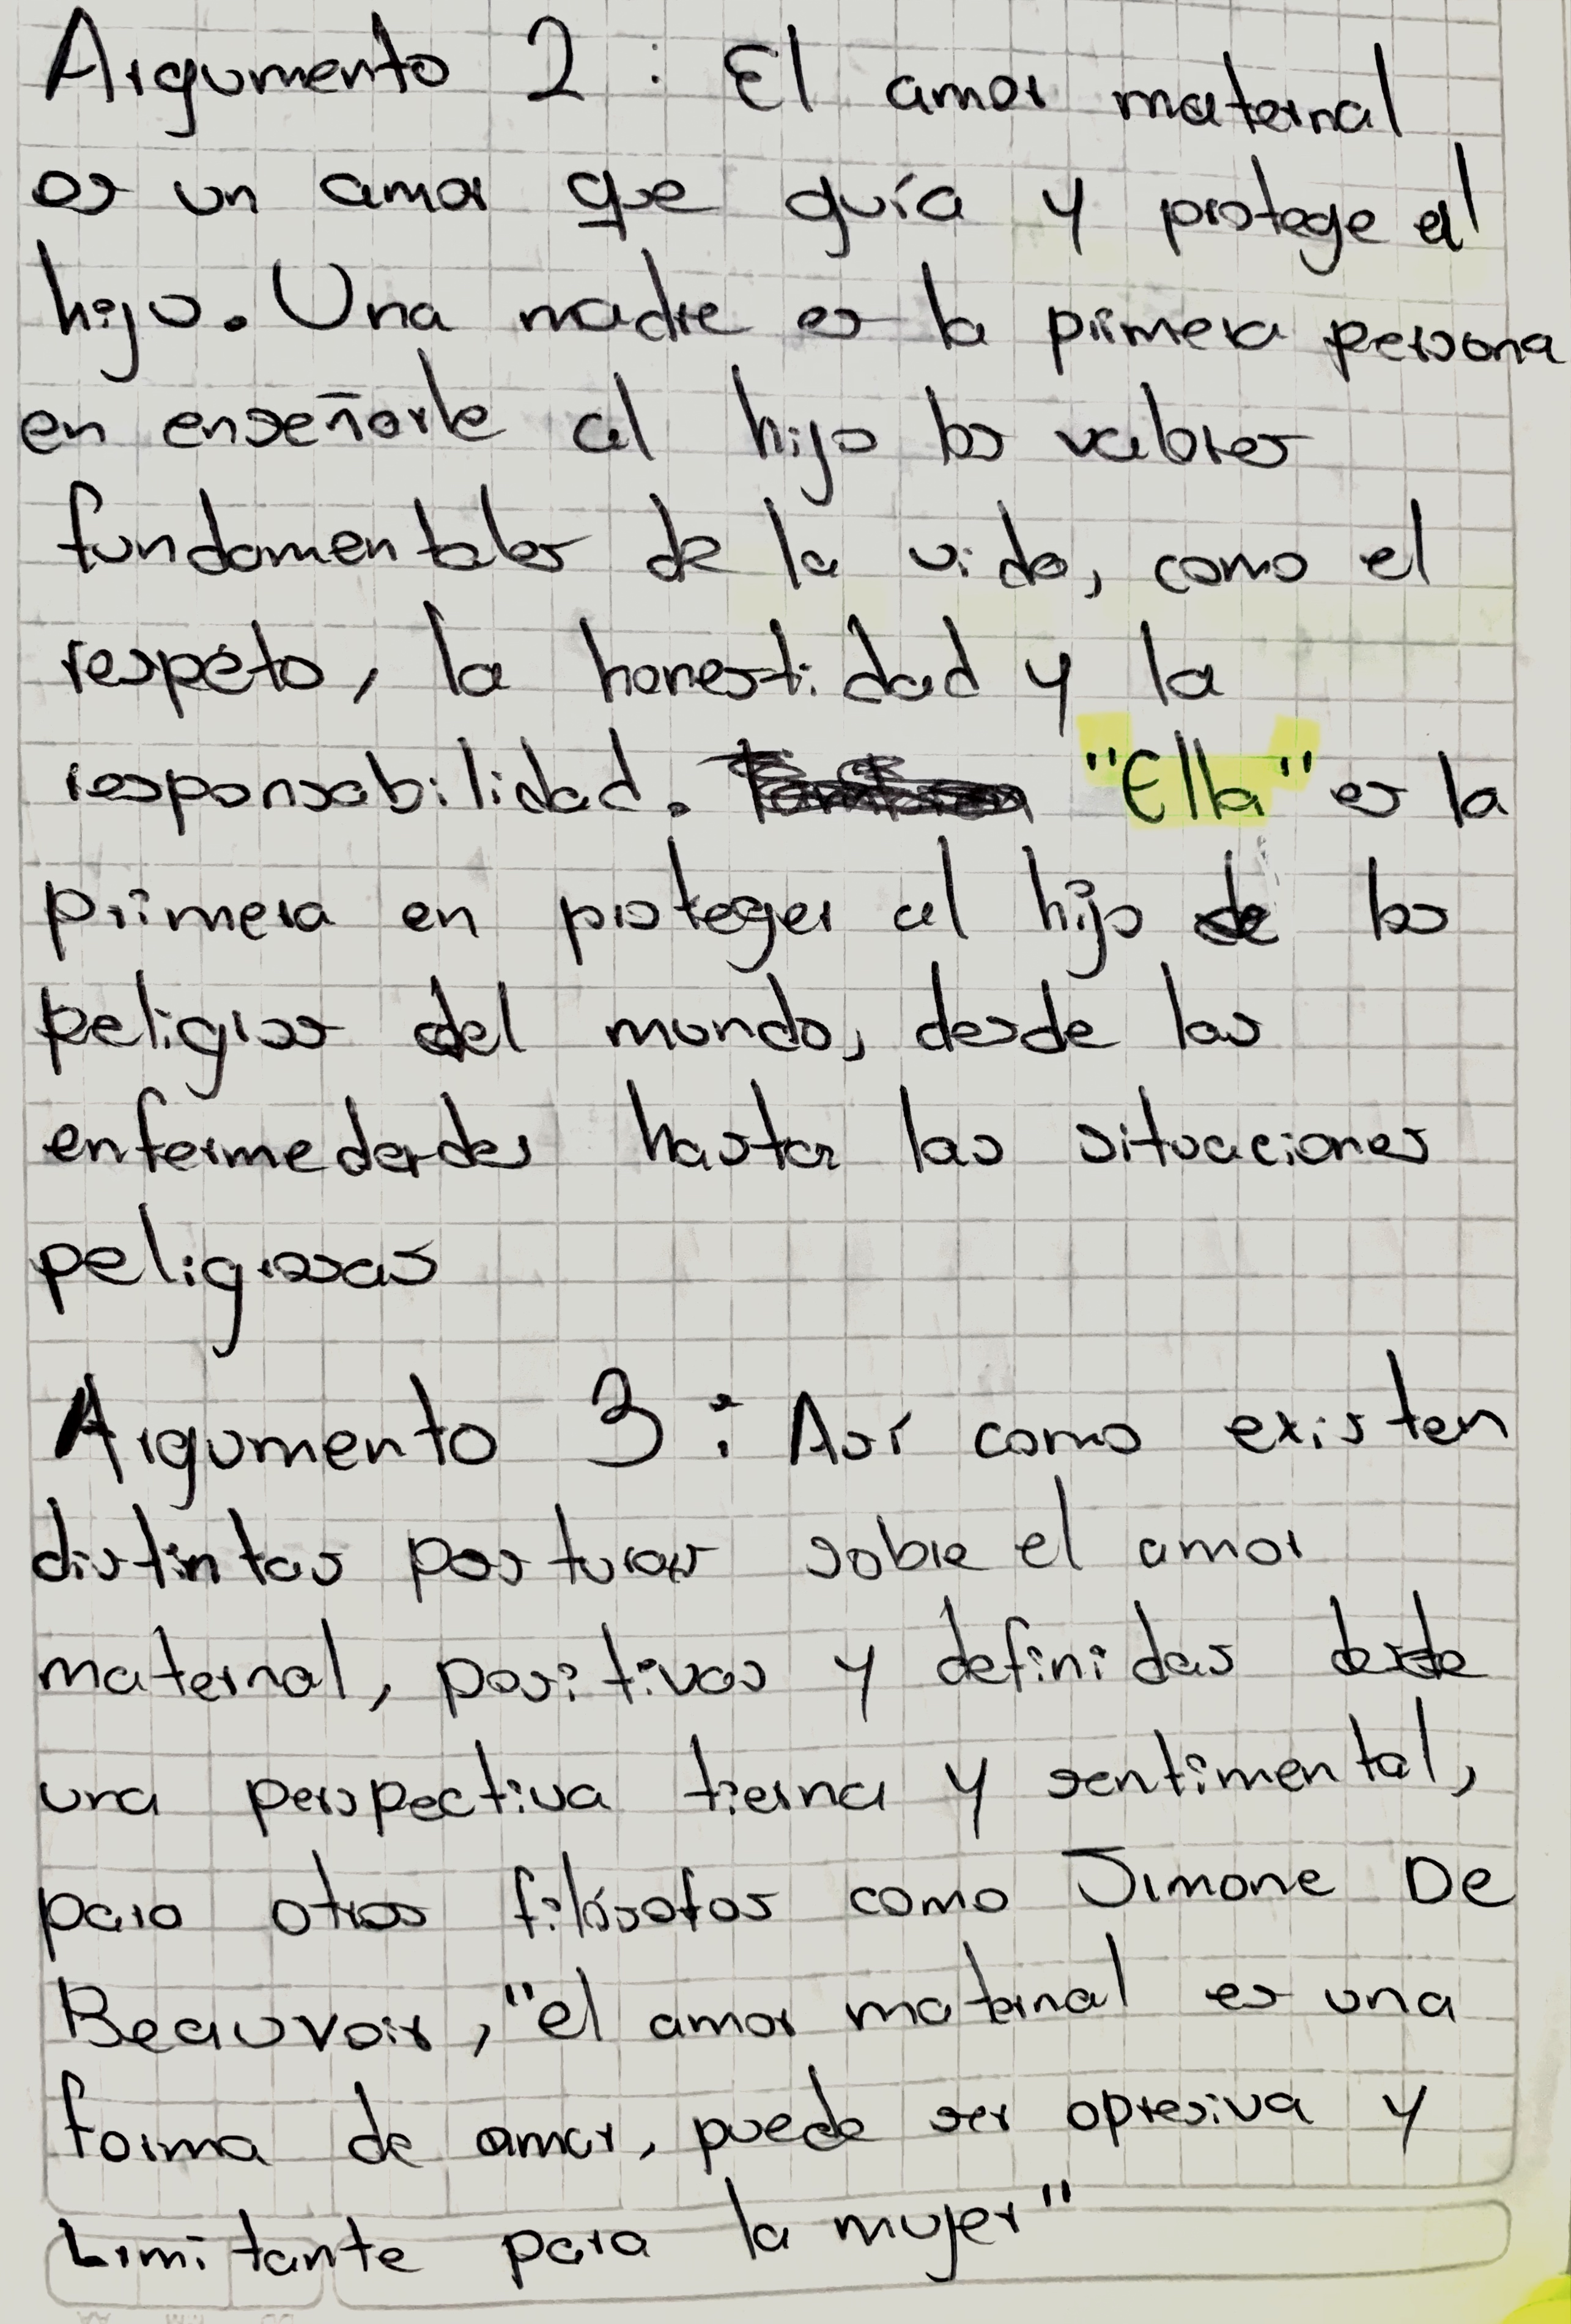 Argumento 2 : El amor maternal
es un amor que guía y protege al
hijo. Una madre es la primera persona
en enseñarle al hijo los valores
fundamentales de la vida, como el
respeto, la honestidad y la
responsabilidad. "Ella" es la
primera en proteger al hijo de los
peligros del mundo, desde las
enfermedades hasta las situaciones
peligrosas
Argumento 3 : Así como existen
distintas posturas sobre el amor
maternal, positivas y definidas desde
una perspectiva tierna y sentimental,
para otros filósofos como Simone De
Beauvoir, "el amor maternal es una
forma de amor, puede ser opresiva y
Limitante para la mujer"